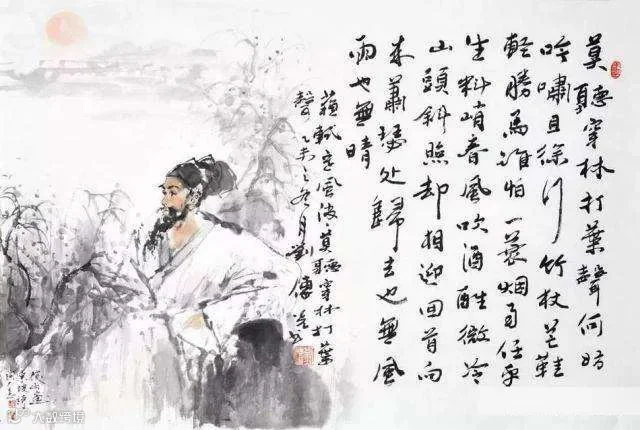 莫聽穿林打葉聲何妨
吟嘯且徐行竹杖芒鞋
輕勝馬誰怕一蓑烟雨任平
生料峭春風吹酒醒微冷
山頭斜照却相迎回首向
来蕭瑟处歸去也無風
雨也無晴
蘇軾定風波莫聽穿林打葉
聲乙未之冬月劉傳
大数跨境